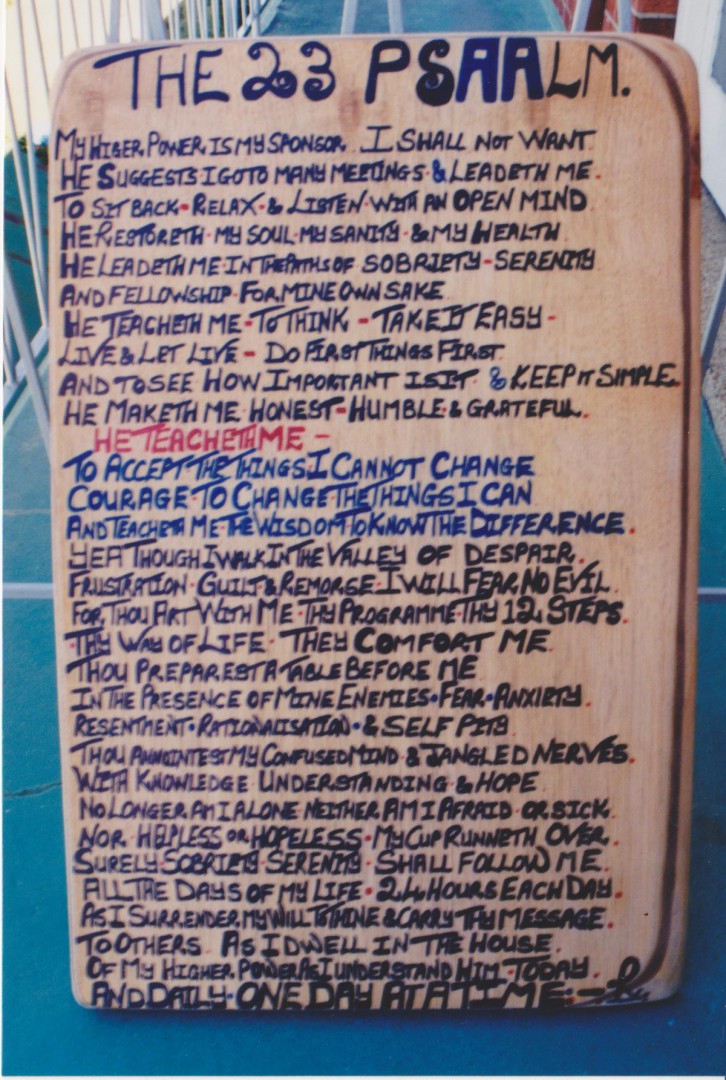 THE 23 PSAALM.
MY HIGER POWER IS MY SPONSOR I SHALL NOT WANT
HE SUGGESTS I GO TO MANY MEETINGS & LEADETH ME.
TO SIT BACK-RELAX & LISTEN WITH AN OPEN MIND
HE RESTORETH MY SOUL MY SANITY & MY HEALTH
HE LEADETH ME IN THE PATHS OF SOBRIETY-SERENITY
AND FELLOWSHIP FOR MINE OWN SAKE
HE TEACHETH ME-TO THINK - TAKE IT EASY-
LIVE & LET LIVE - DO FIRST THINGS FIRST
AND TO SEE HOW IMPORTANT IS IT & KEEP IT SIMPLE.
HE MAKETH ME HONEST-HUMBLE & GRATEFUL.
HE TEACHETH ME -
TO ACCEPT THE THINGS I CANNOT CHANGE
COURAGE TO CHANGE THE THINGS I CAN
AND TEACHETH ME THE WISDOM TO KNOW THE DIFFERENCE.
YEA THOUGH I WALK IN THE VALLEY OF DESPAIR.
FRUSTRATION GUILT & REMORSE I WILL FEAR NO EVIL.
FOR THOU ART WITH ME THY PROGRAMME THY 12 STEPS.
THY WAY OF LIFE THEY COMFORT ME
THOU PREPAREST A TABLE BEFORE ME
IN THE PRESENCE OF MINE ENEMIES·FEAR·ANXIETY.
RESENTMENT·RATIONALISATION·& SELF PITY
THOU ANNOINTEST MY CONFUSED MIND & JANGLED NERVES.
WITH KNOWLEDGE UNDERSTANDING & HOPE
NO LONGER AM I ALONE NEITHER AM I AFRAID OR SICK.
NOR HELPLESS OR HOPELESS·MY CUP RUNNETH OVER.
SURELY SOBRIETY SERENITY SHALL FOLLOW ME.
ALL THE DAYS OF MY LIFE·24 HOURS EACH DAY.
AS I SURRENDER MY WILL TO THINE & CARRY THY MESSAGE.
TO OTHERS AS I DWELL IN THE HOUSE.
OF MY HIGHER POWER AS I UNDERSTAND HIM TODAY.
AND DAILY·ONE DAY AT A TIME:-